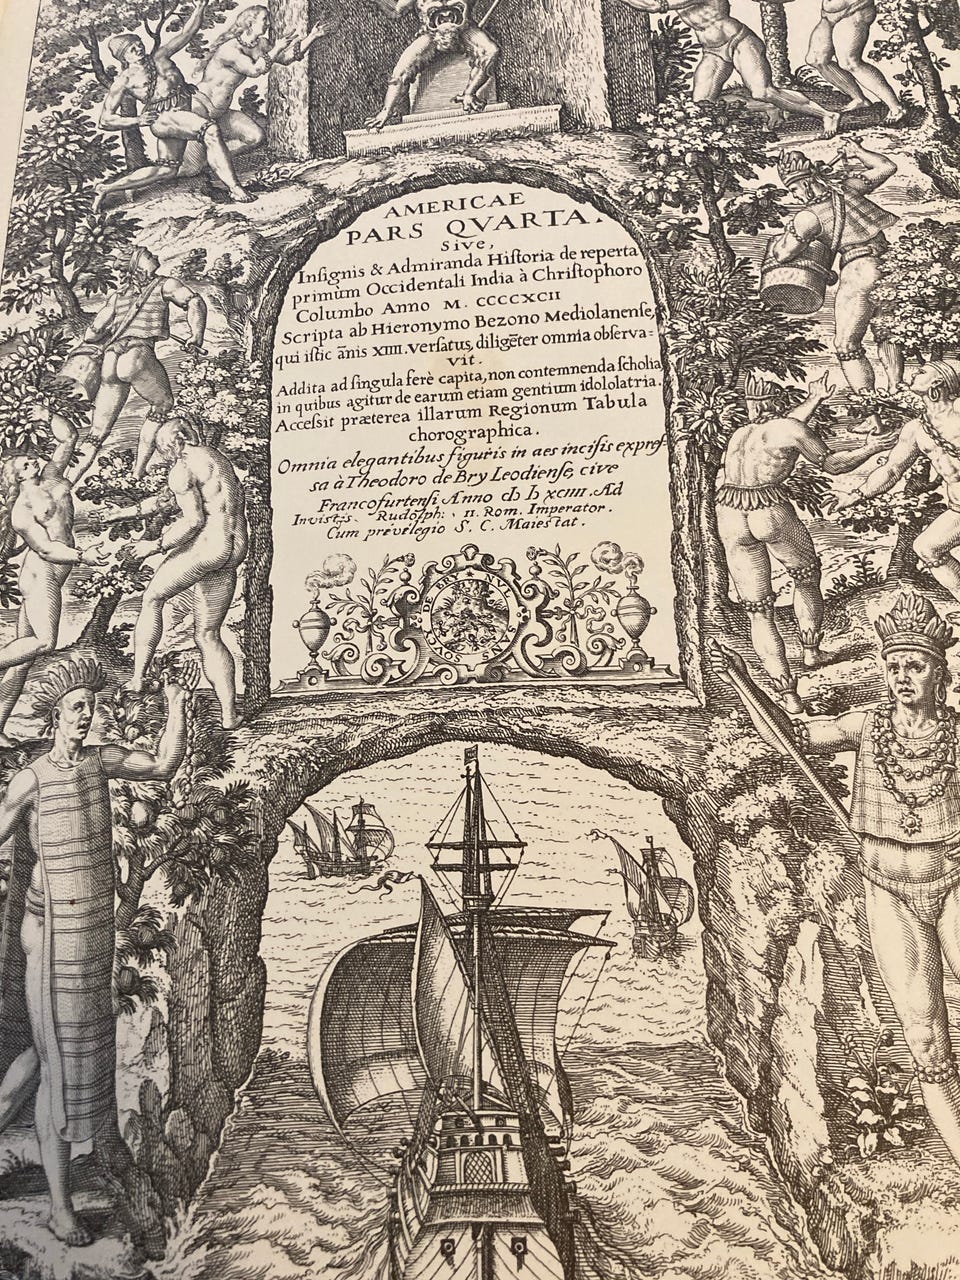 AMERICAE
PARS QVARTA.
Sive,
Inſignis & Admiranda Hiſtoria de reperta
primùm Occidentali India à Chriſtophoro
Columbo Anno M. CCCCXCII
Scripta ab Hieronymo Bezono Mediolanenſe,
qui iſtic ãnis XIIII. verſatus, diligẽter omnia obſerva=
vit.
Addita ad ſingula ferè capita, non contemnenda ſcholia,
in quibus agitur de earum etiam gentium idololatria.
Acceſsit præterea illarum Regionum Tabula
chorographica.
Omnia elegantibus figuris in aes inciſis expreſ=
sa à Theodoro de Bry Leodienſe, cive
Francofurtenſi Anno cIɔ Iɔ xciiii. Ad
Invictſs. Rudolph: II. Rom. Imperator.
Cum prevelegio S. C. Maieſtat.
DE BRY NVL
SOVCY SAN